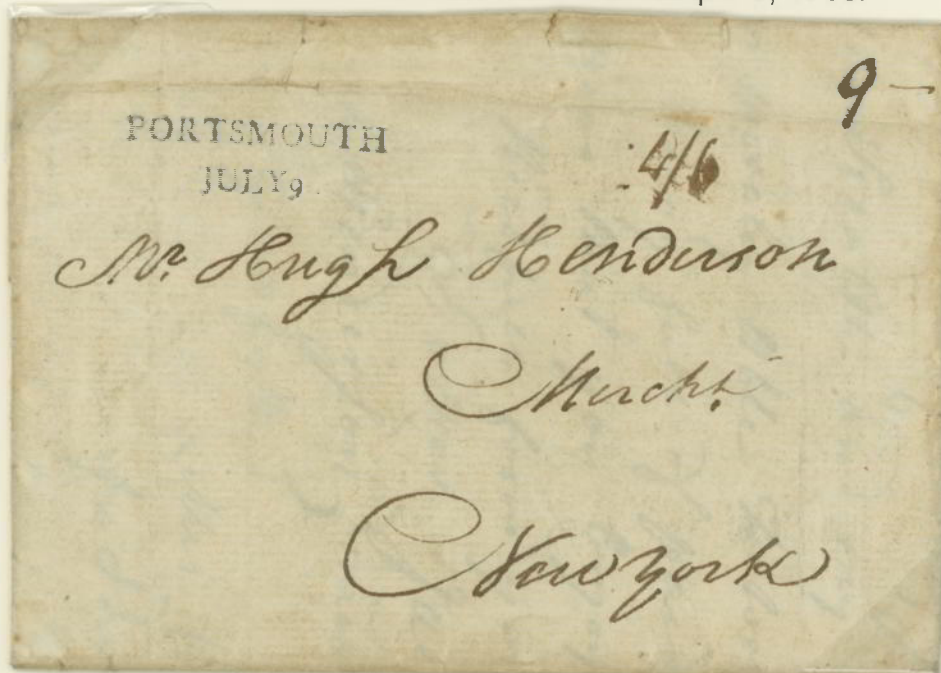 9 –
PORTSMOUTH
JULY 9
4/6
Mr. Hugh Henderson
Mercht.
New York